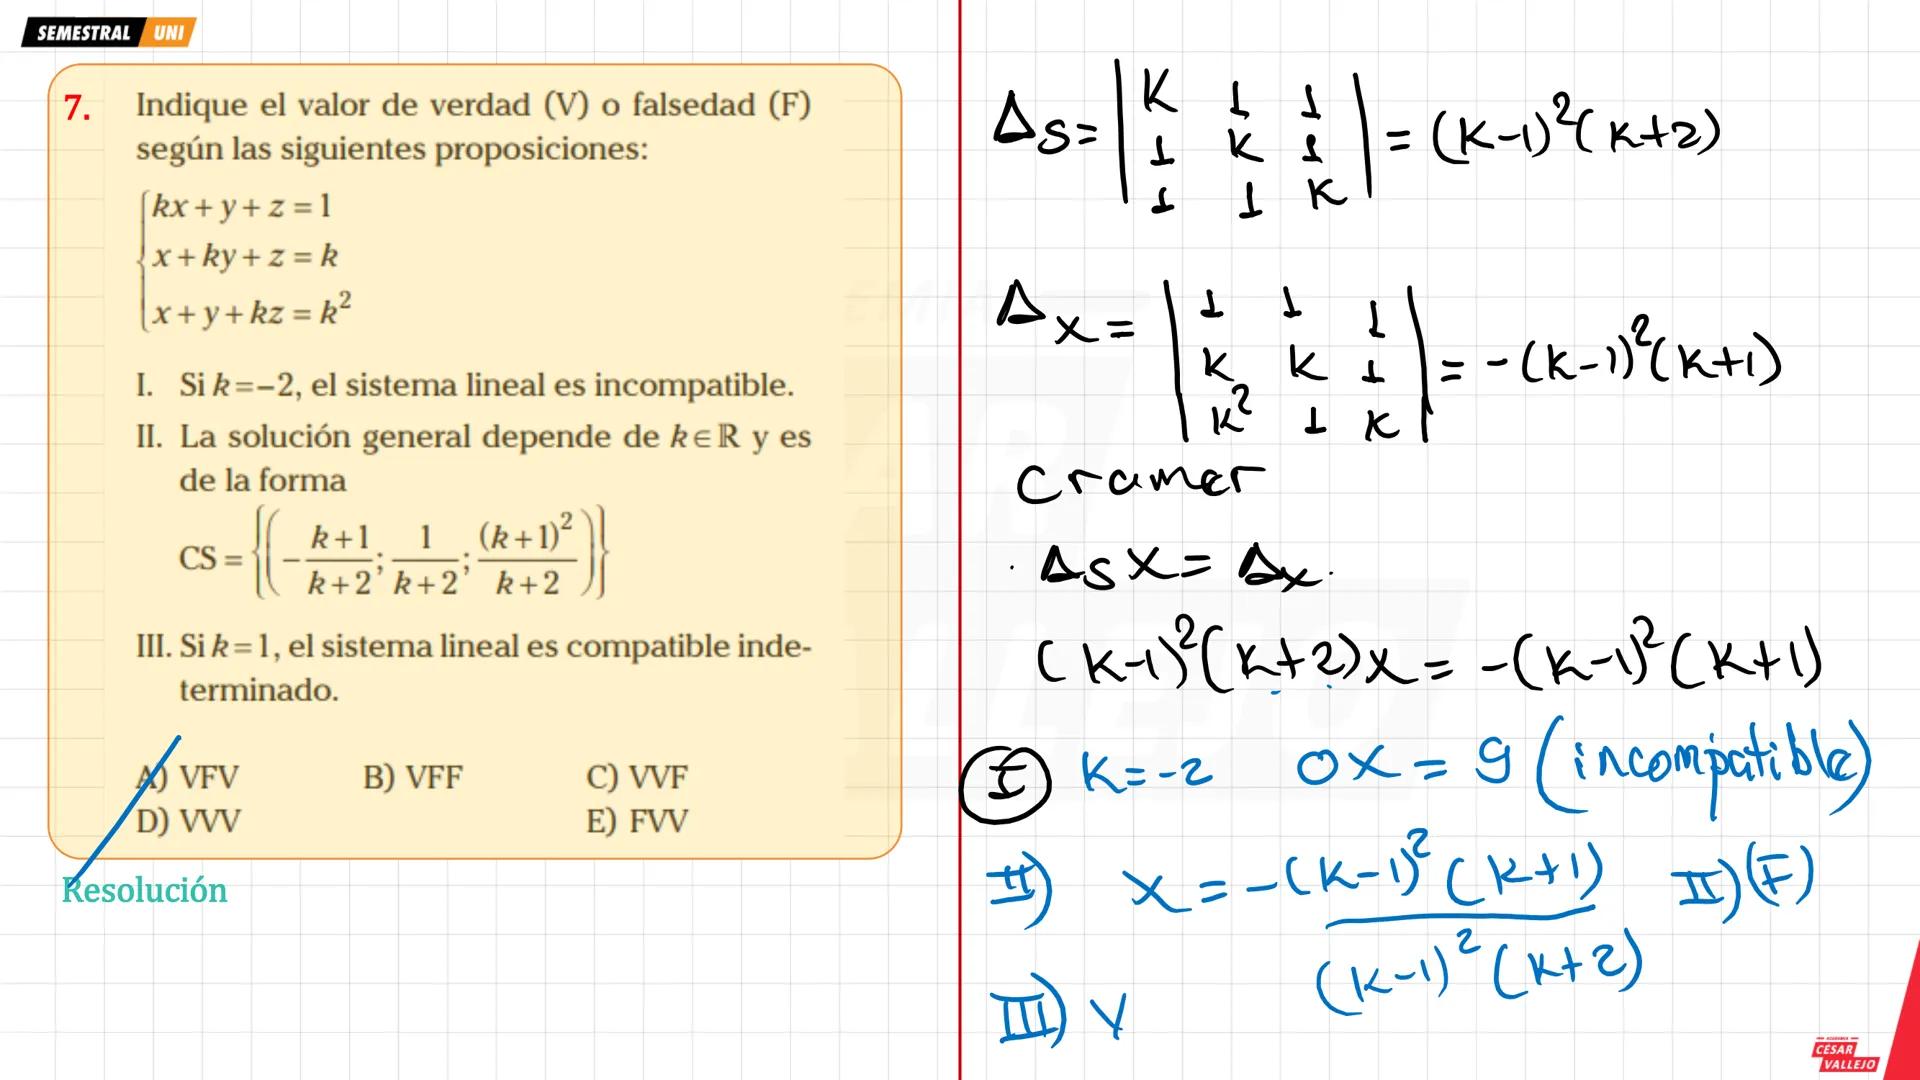 SEMESTRAL UNI
7. Indique el valor de verdad (V) o falsedad (F)
según las siguientes proposiciones:
kx + y + z = 1
x + ky + z = k
x + y + kz = k²
I. Si k=−2, el sistema lineal es incompatible.
II. La solución general depende de k∈ℝ y es
de la forma
CS = {(−(k+1)/(k+2); 1/(k+2); (k+1)²/(k+2))}
III. Si k=1, el sistema lineal es compatible inde-
terminado.
A) VFV B) VFF C) VVF
D) VVV E) FVV
Resolución
Δs = | K 1 1 |
| 1 K 1 | = (K-1)²(K+2)
| 1 1 K |
Δx = | 1 1 1 |
| K K 1 | = -(K-1)²(K+1)
| K² 1 K |
Cramer
Δs X = Δx
(K-1)²(K+2)x = -(K-1)²(K+1)
I K=-2 0X = 9 (incompatible)
II) X = -(K-1)²(K+1) II)(F)
(K-1)²(K+2)
III) V
ACADEMIA
CESAR
VALLEJO